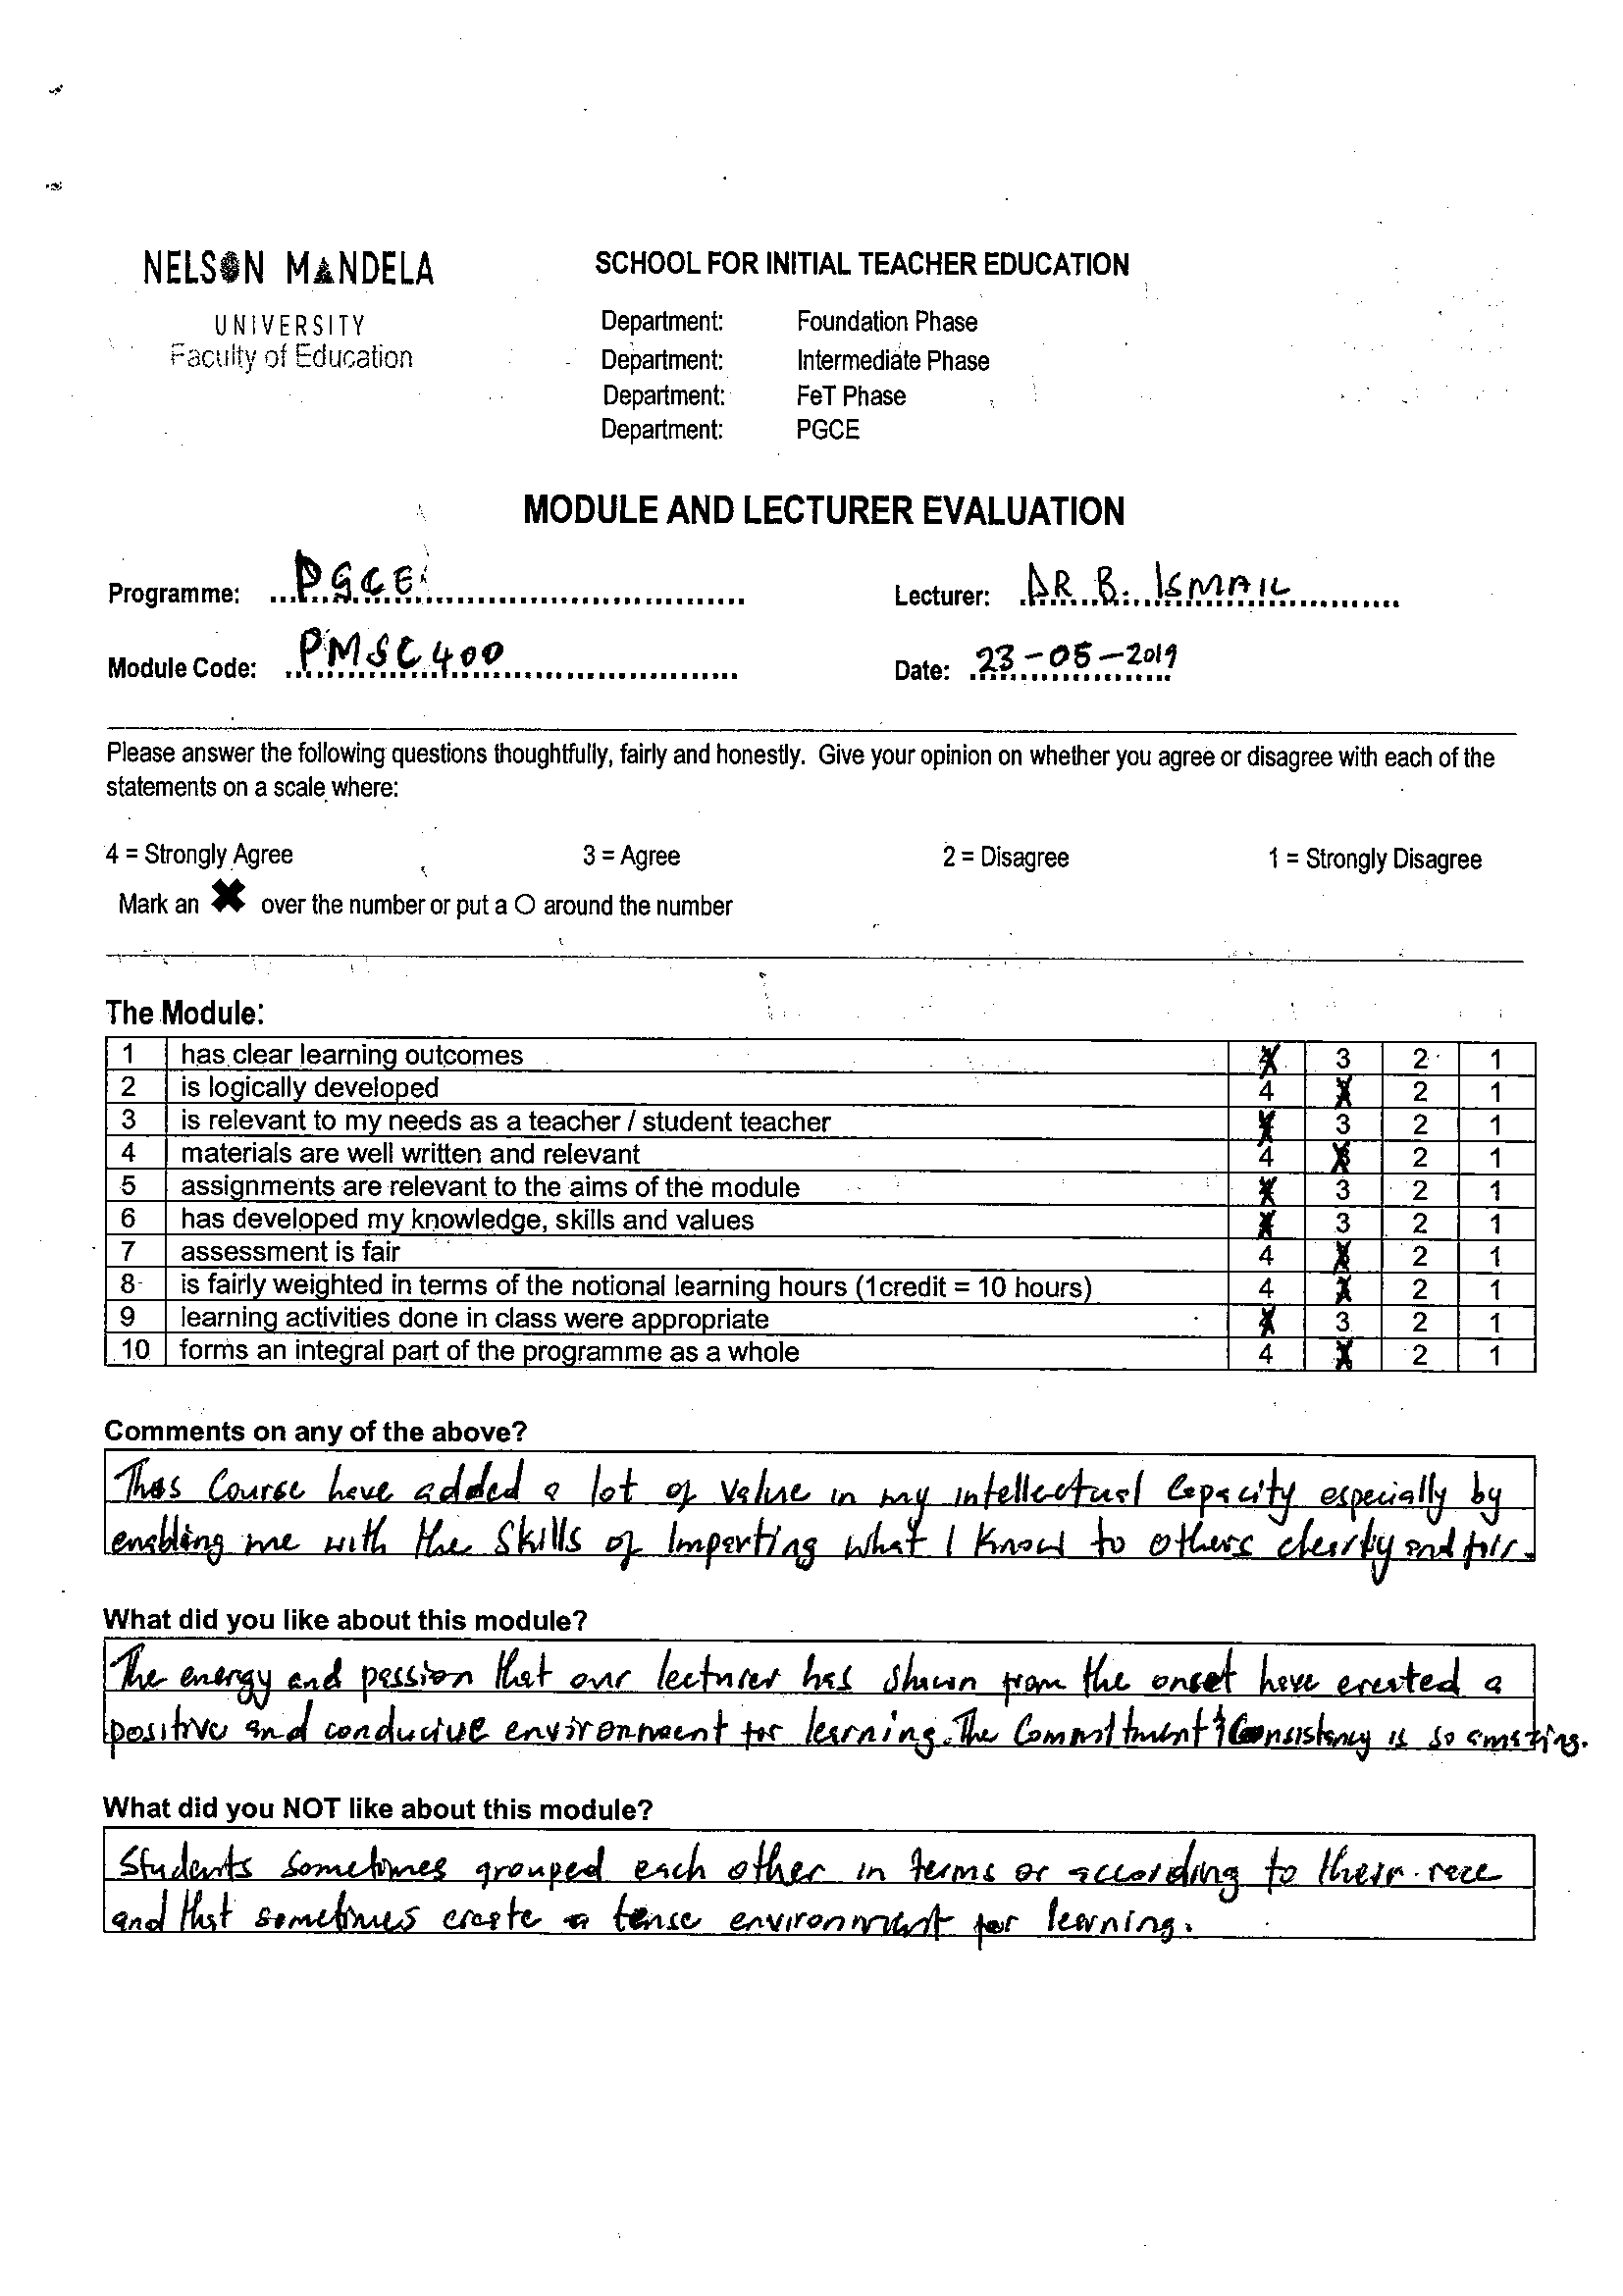 NELSON MANDELA
UNIVERSITY
Faculty of Education
SCHOOL FOR INITIAL TEACHER EDUCATION
Department: Foundation Phase
Department: Intermediate Phase
Department: FeT Phase
Department: PGCE
MODULE AND LECTURER EVALUATION
Programme: PGCE
Lecturer: DR B. ISMAIL
Module Code: PMSC400
Date: 23-05-2019
Please answer the following questions thoughtfully, fairly and honestly. Give your opinion on whether you agree or disagree with each of the
statements on a scale where:
4 = Strongly Agree 3 = Agree 2 = Disagree 1 = Strongly Disagree
Mark an ✖ over the number or put a O around the number
The Module:
1 has clear learning outcomes 4 3 2 1
2 is logically developed 4 3 2 1
3 is relevant to my needs as a teacher / student teacher 4 3 2 1
4 materials are well written and relevant 4 3 2 1
5 assignments are relevant to the aims of the module 4 3 2 1
6 has developed my knowledge, skills and values 4 3 2 1
7 assessment is fair 4 3 2 1
8 is fairly weighted in terms of the notional learning hours (1credit = 10 hours) 4 3 2 1
9 learning activities done in class were appropriate 4 3 2 1
10 forms an integral part of the programme as a whole 4 3 2 1
Comments on any of the above?
This Course have added a lot of value in my intellectual Capacity especially by
enabling me with the skills of Imparting what I know to others clearly and fair.
What did you like about this module?
The energy and passion that our lecturer has shown from the onset have created a
positive and conducive environment for learning. The Commitment & Consistency is so amazing.
What did you NOT like about this module?
Students sometimes grouped each other in terms or according to their race
and that sometimes create a tense environment for learning.